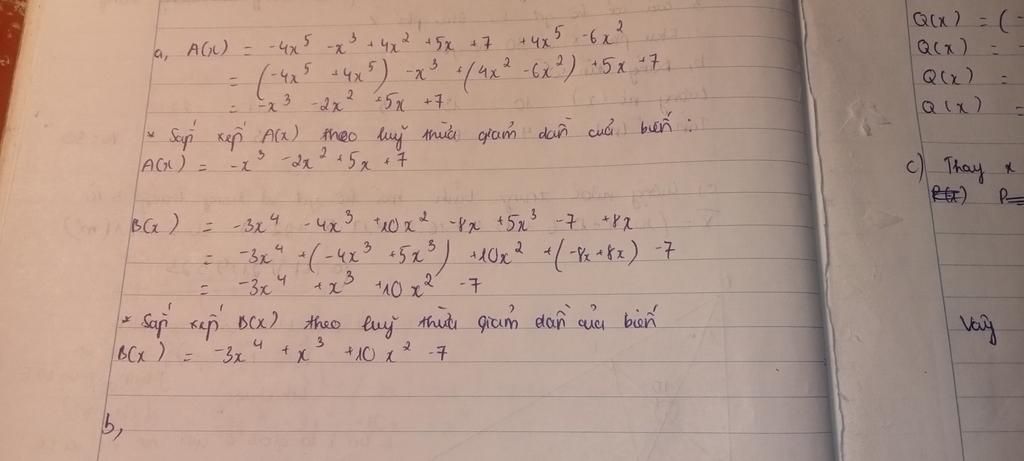 a, A(x) = -4x⁵ -x³ +4x² +5x +7 +4x⁵ -6x²
= (-4x⁵ +4x⁵) -x³ +(4x² -6x²) +5x +7
= -x³ -2x² +5x +7
* Sắp xếp A(x) theo luỹ thừa giảm dần của biến :
A(x) = -x³ -2x² +5x +7
B(x) = -3x⁴ -4x³ +10x² -8x +5x³ -7 +8x
= -3x⁴ +(-4x³ +5x³) +10x² +(-8x+8x) -7
= -3x⁴ +x³ +10x² -7
* Sắp xếp B(x) theo luỹ thừa giảm dần của biến
B(x) = -3x⁴ + x³ +10x² -7
b,
Q(x) = (-
Q(x) = -
Q(x) =
Q(x) =
c) Thay x
P
Vậy